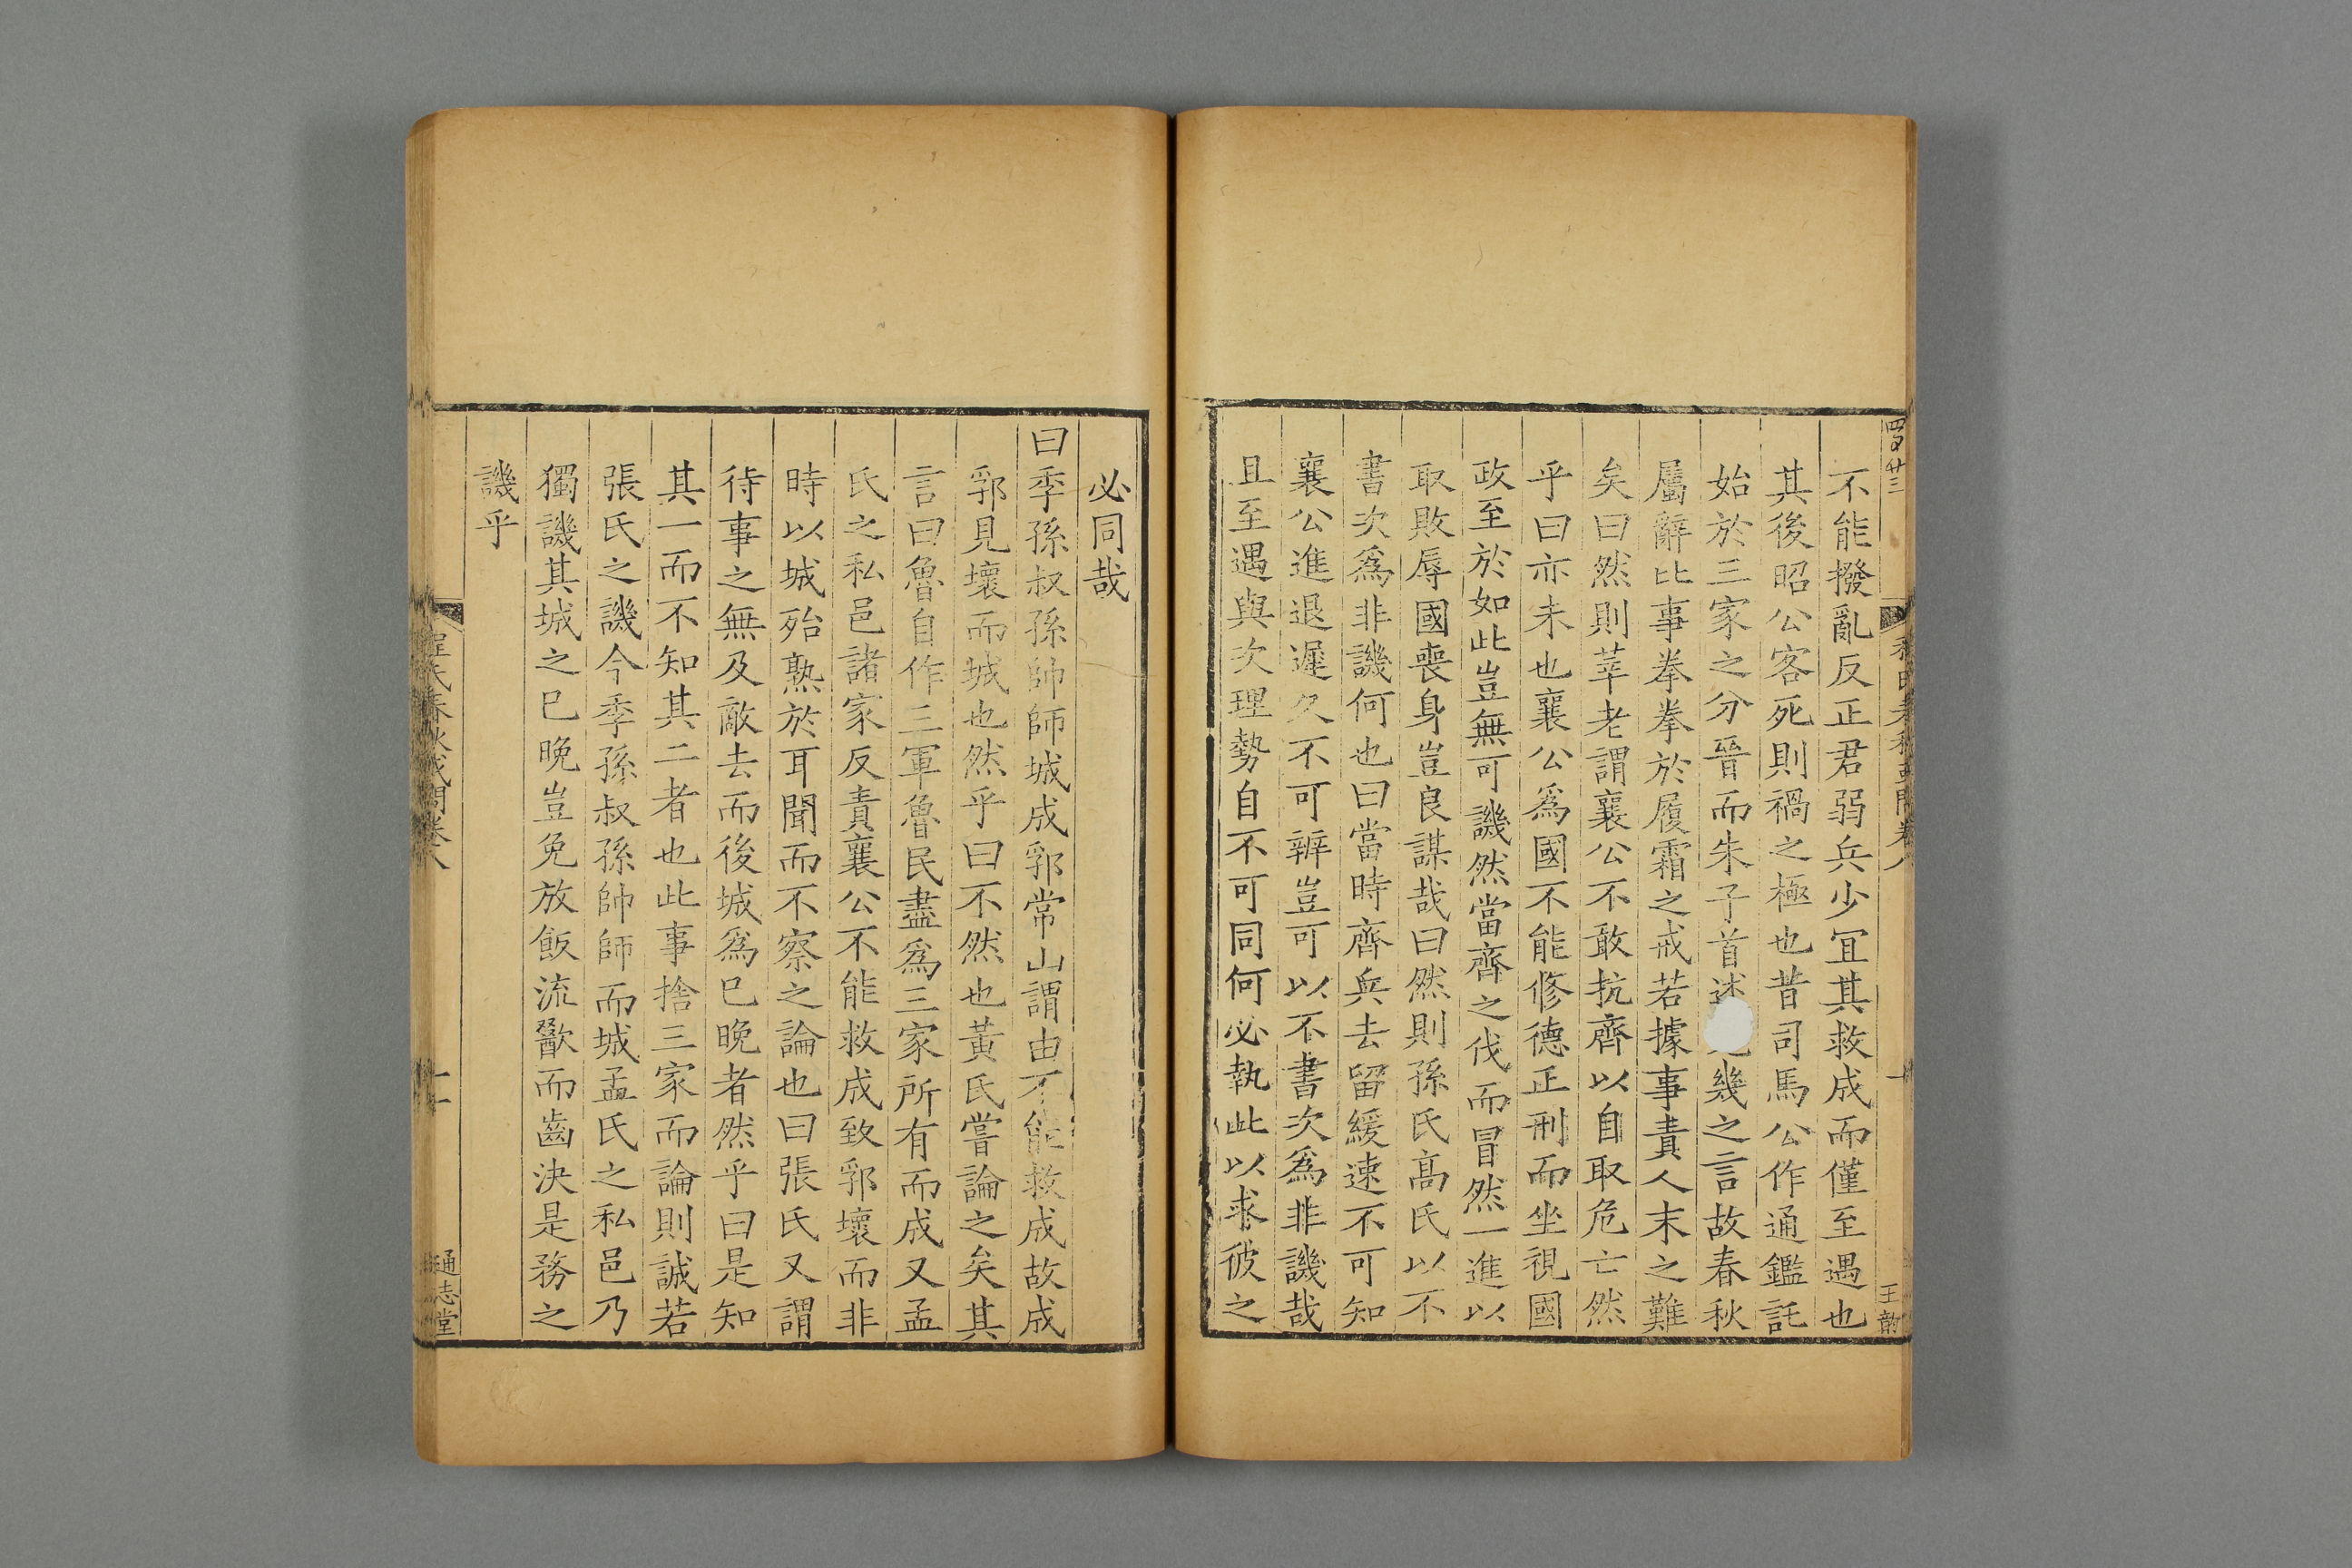 不能撥亂反正君弱兵少冝其救成而僅至遇也
其後昭公客死則禍之極也昔司馬公作通鑑託
始於三家之分晉而朱子首述幾之言故春秋
屬辭比事拳拳於履霜之戒若據事責人末之難
矣曰然則莘老謂襄公不敢抗齊以自取危亡然
乎曰亦未也襄公爲國不能修德正刑而坐視國
政至於如此豈無可譏然當齊之伐而冒然一進以
取敗辱國喪身豈良謀哉曰然則孫氏髙氏以不
書次爲非譏何也曰當時齊兵去留緩速不可知
襄公進退遲久不可辨豈可以不書次爲非譏哉
且至遇與次理勢自不可同何必執此以求彼之
必同哉
曰季孫叔孫帥師城成郛常山謂由不能救成故成
郛見壞而城也然乎曰不然也黃氏嘗論之矣其
言曰魯自作三軍魯民盡爲三家所有而成又孟
氏之私邑諸家反責襄公不能救成致郛壞而非
時以城殆熟於耳聞而不察之論也曰張氏又謂
待事之無及敵去而後城爲巳晚者然乎曰是知
其一而不知其二者也此事捨三家而論則誠若
張氏之譏今季孫叔孫帥師而城孟氏之私邑乃
獨譏其城之巳晚豈免放飯流歠而齒決是務之
譏乎
程氏春秋或問卷八
十一
通志堂